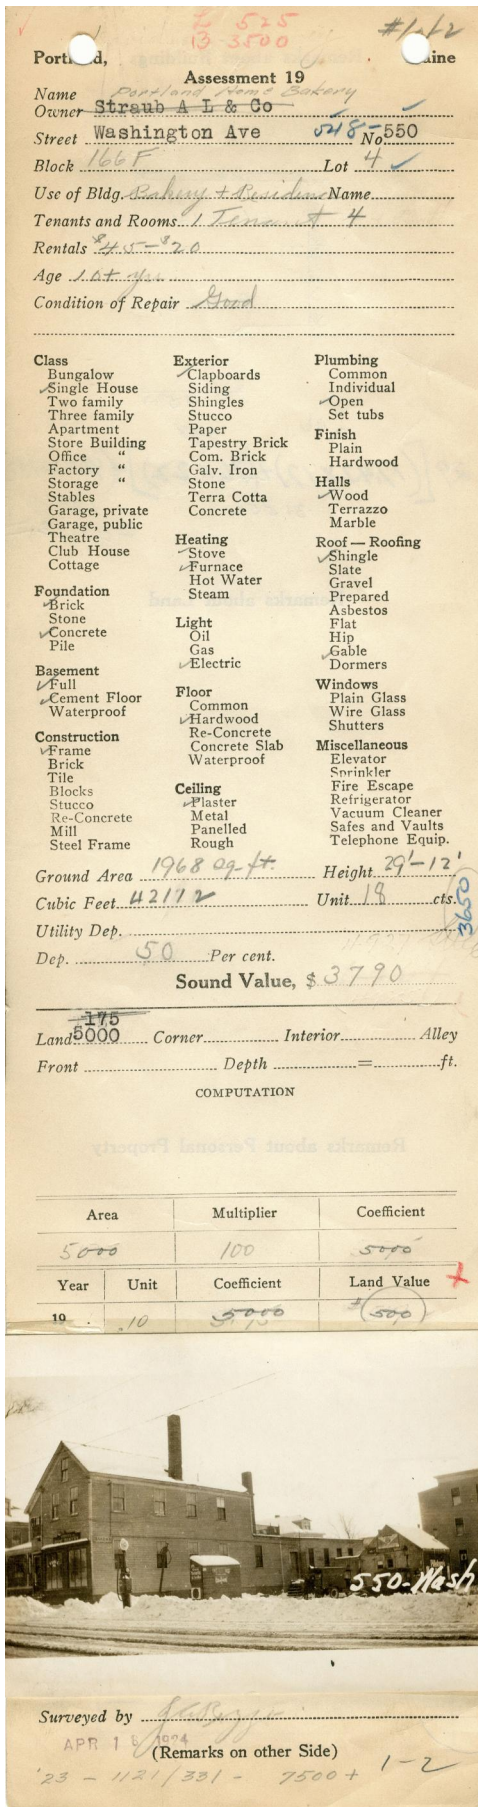 L 525
B 3500
#1 of 2
Portland, Maine
Assessment 19
Name Portland Home Bakery
Owner Straub A L & Co
Street Washington Ave 548-550 No.
Block 166 F Lot 4
Use of Bldg. Bakery + Residence Name
Tenants and Rooms 1 Tenant 4
Rentals $45-$20
Age 10+ yrs
Condition of Repair Good
Class
Bungalow
Single House
Two family
Three family
Apartment
Store Building
Office "
Factory "
Storage "
Stables
Garage, private
Garage, public
Theatre
Club House
Cottage
Foundation
Brick
Stone
Concrete
Pile
Basement
Full
Cement Floor
Waterproof
Construction
Frame
Brick
Tile
Blocks
Stucco
Re-Concrete
Mill
Steel Frame
Exterior
Clapboards
Siding
Shingles
Stucco
Paper
Tapestry Brick
Com. Brick
Galv. Iron
Stone
Terra Cotta
Concrete
Heating
Stove
Furnace
Hot Water
Steam
Light
Oil
Gas
Electric
Floor
Common
Hardwood
Re-Concrete
Concrete Slab
Waterproof
Ceiling
Plaster
Metal
Panelled
Rough
Plumbing
Common
Individual
Open
Set tubs
Finish
Plain
Hardwood
Halls
Wood
Terrazzo
Marble
Roof — Roofing
Shingle
Slate
Gravel
Prepared
Asbestos
Flat
Hip
Gable
Dormers
Windows
Plain Glass
Wire Glass
Shutters
Miscellaneous
Elevator
Sprinkler
Fire Escape
Refrigerator
Vacuum Cleaner
Safes and Vaults
Telephone Equip.
Ground Area 1968 sq. ft. Height 29'-12'
Cubic Feet 42112 Unit 18 cts.
3650
Utility Dep.
Dep. 50 Per cent.
Sound Value, $ 3790
175
Land 5000 Corner Interior Alley
Front Depth = ft.
COMPUTATION
Area Multiplier Coefficient
5000 100 5000
Year Unit Coefficient Land Value
19 .10 5000 $500
550-Wash
Surveyed by
APR 16 1924
(Remarks on other Side)
'23 - 1121/331 - 7500 + 1-2